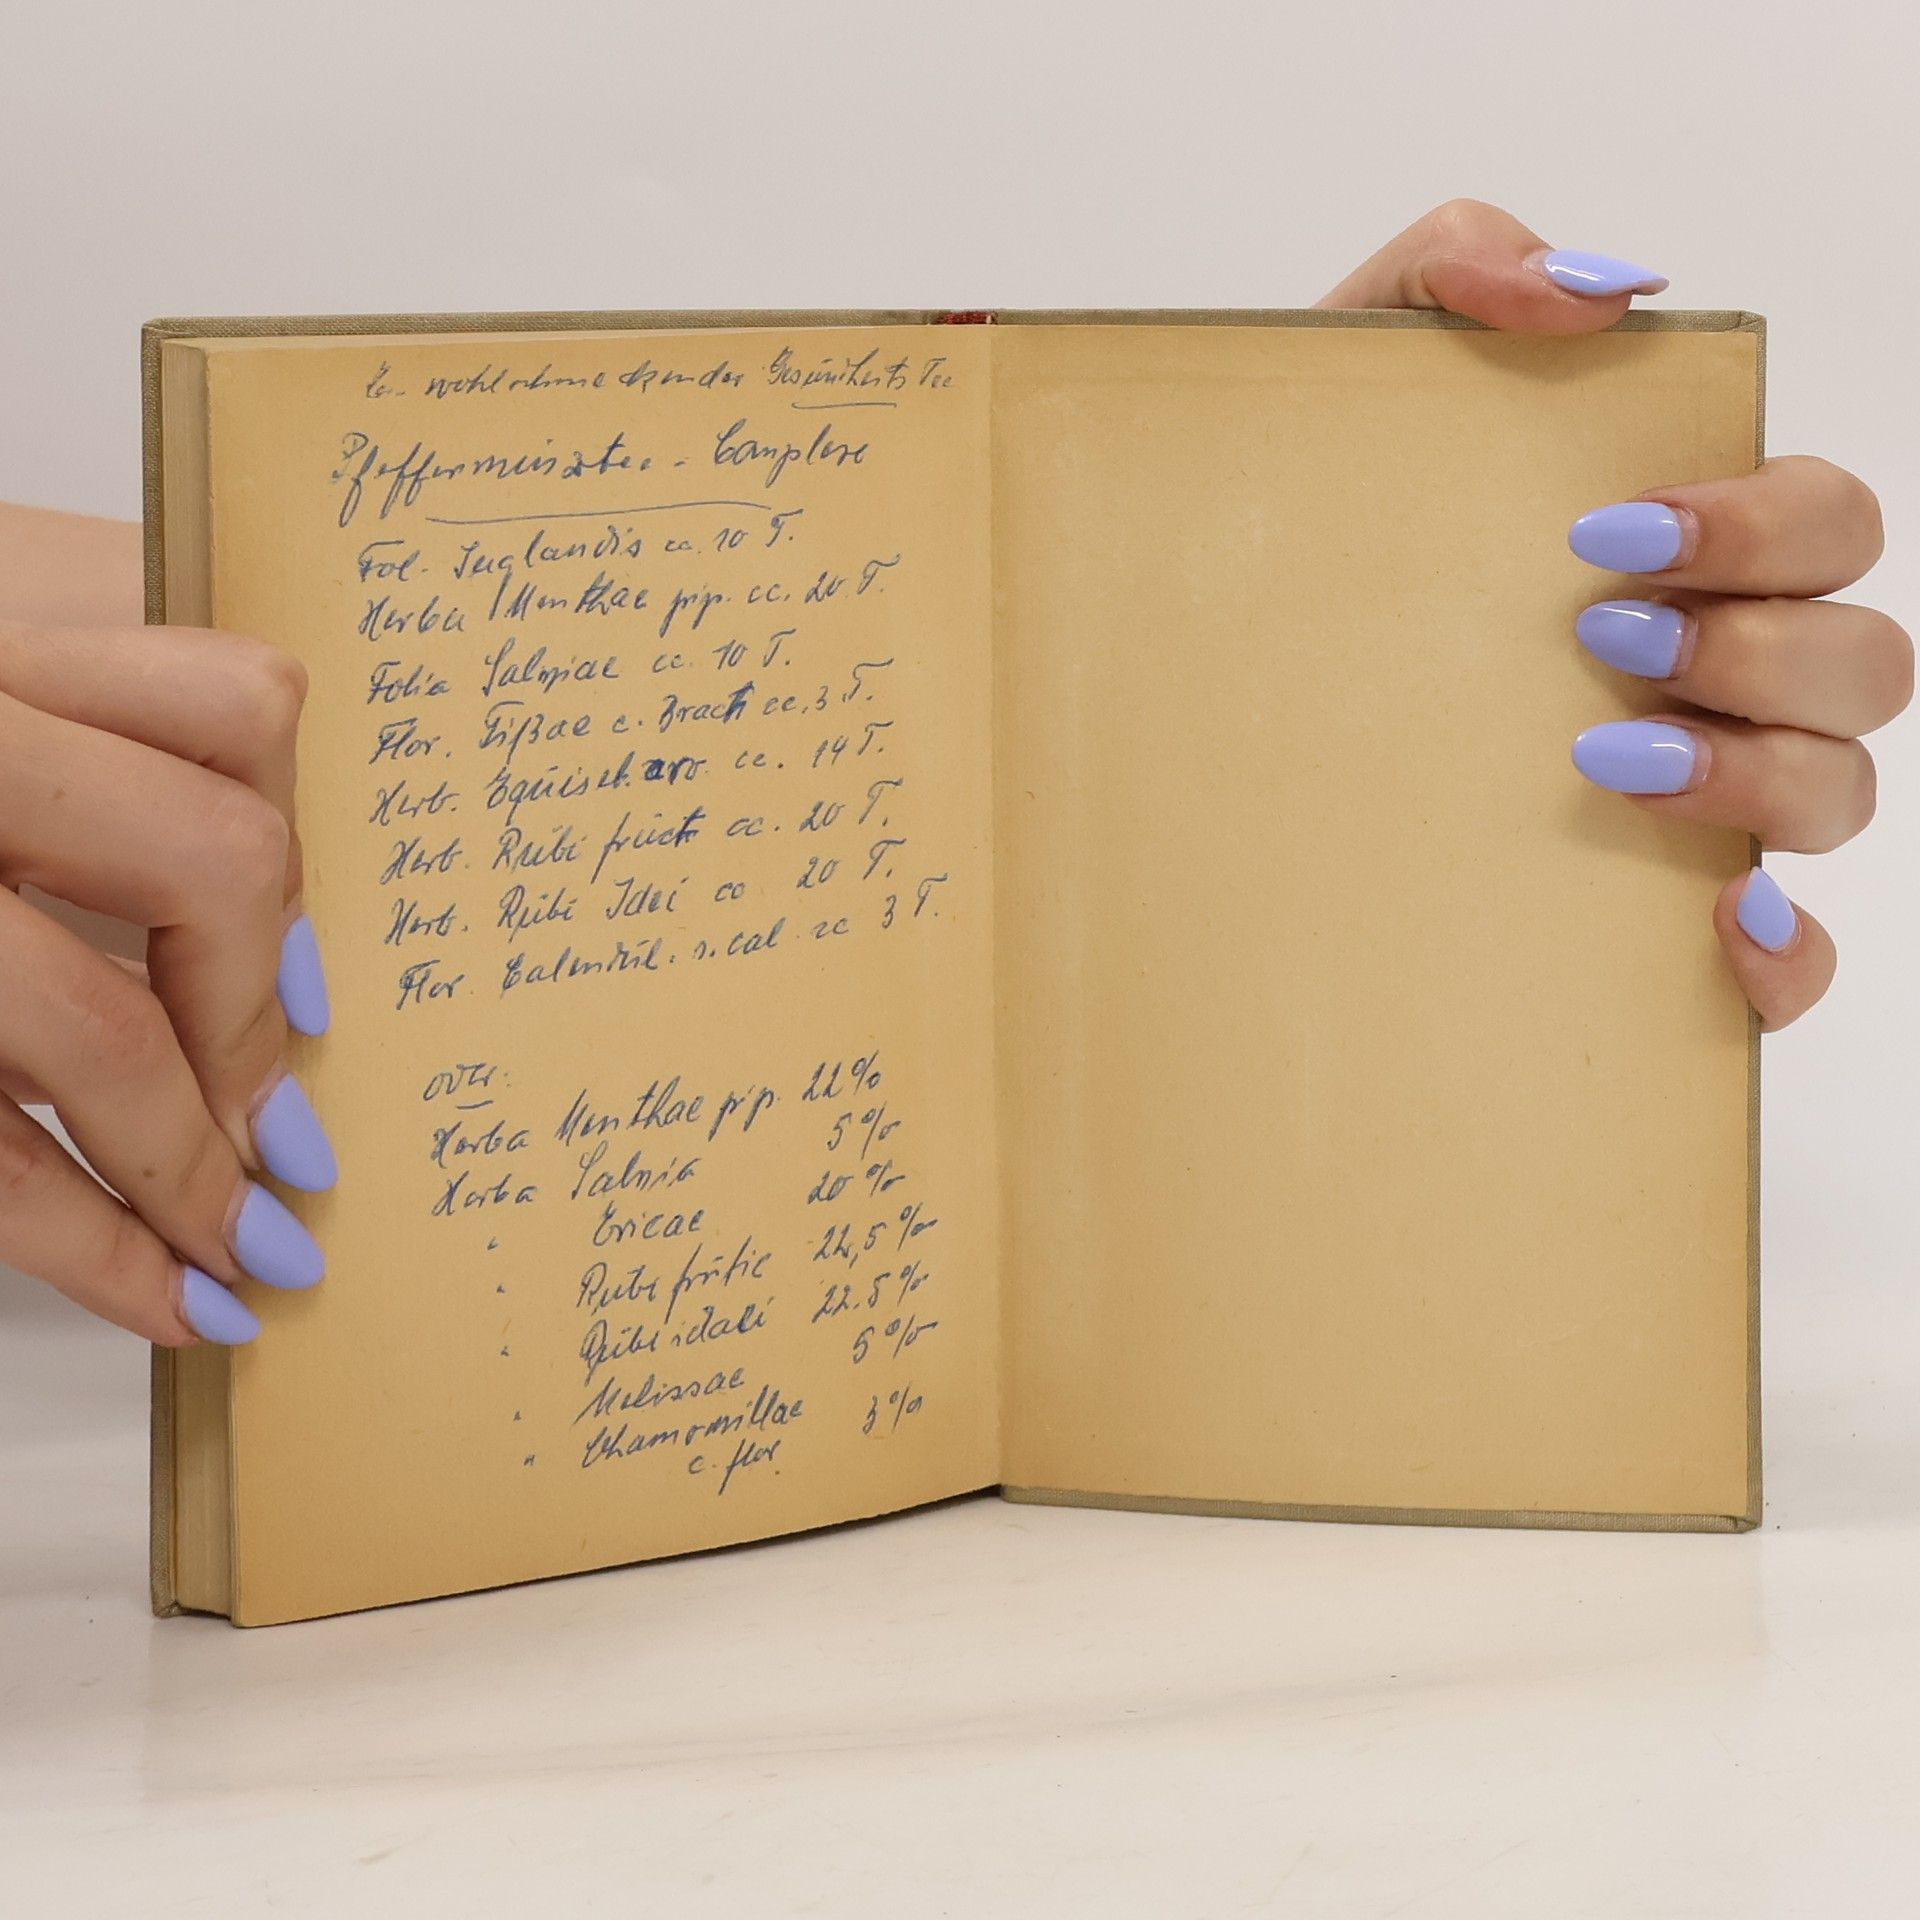 wohlschmeckender Gesundheits Tee
Pfefferminztee - Complexe
Fol. Juglandis cc. 10 T.
Herba Menthae pip. cc. 20 T.
Folia Salviae cc. 10 T.
Flor. Tiliae c. Bract cc. 3 T.
Herb. Equiset. arv. cc. 14 T.
Herb. Rubi fruct cc. 20 T.
Herb. Rubi Idei cc 20 T.
Flor. Calendul. s. cal cc 3 T.
oder:
Herba Menthae pip. 22%
Herba Salvia 5%
" Ericae 20%
" Rubi frutic 22,5%
" Rubi idaei 22.5%
" Melissae 5%
" Chamomillae 3%
c. flor.